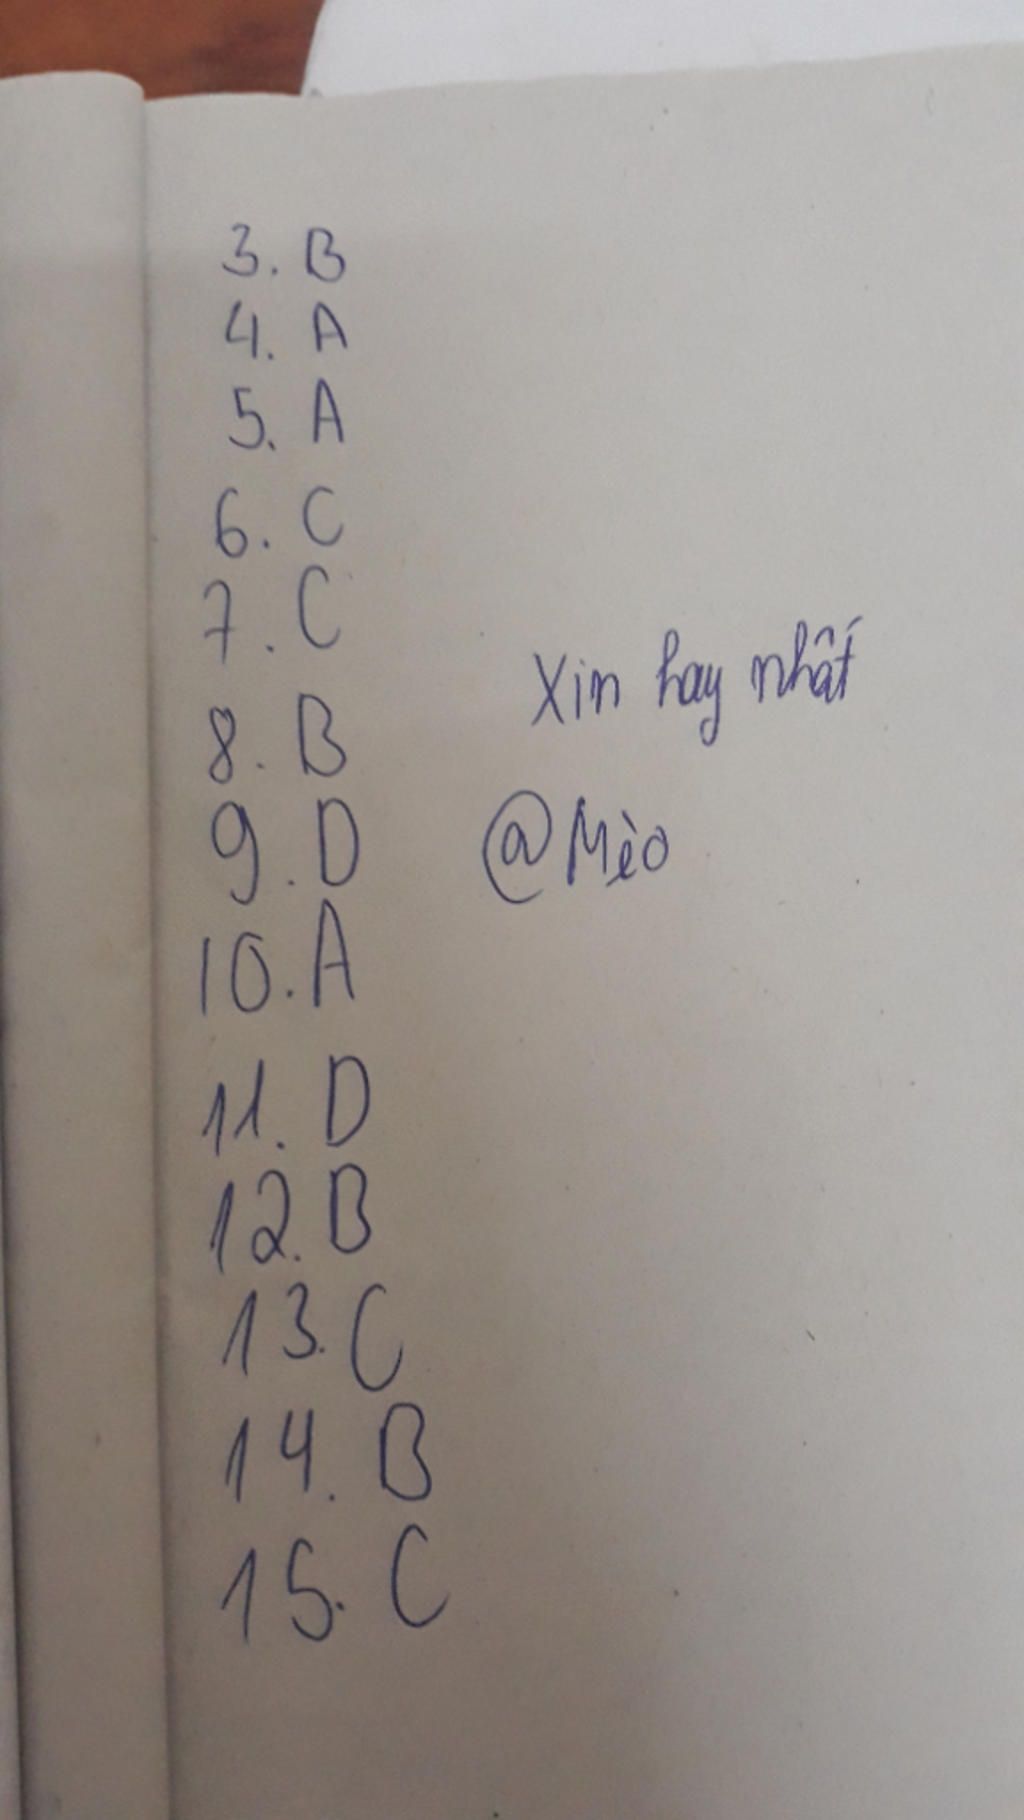 3. B
4. A
5. A
6. C
7. C
8. B
9. D
10. A
11. D
12. B
13. C
14. B
15. C
Xin hay nhất
@Mèo